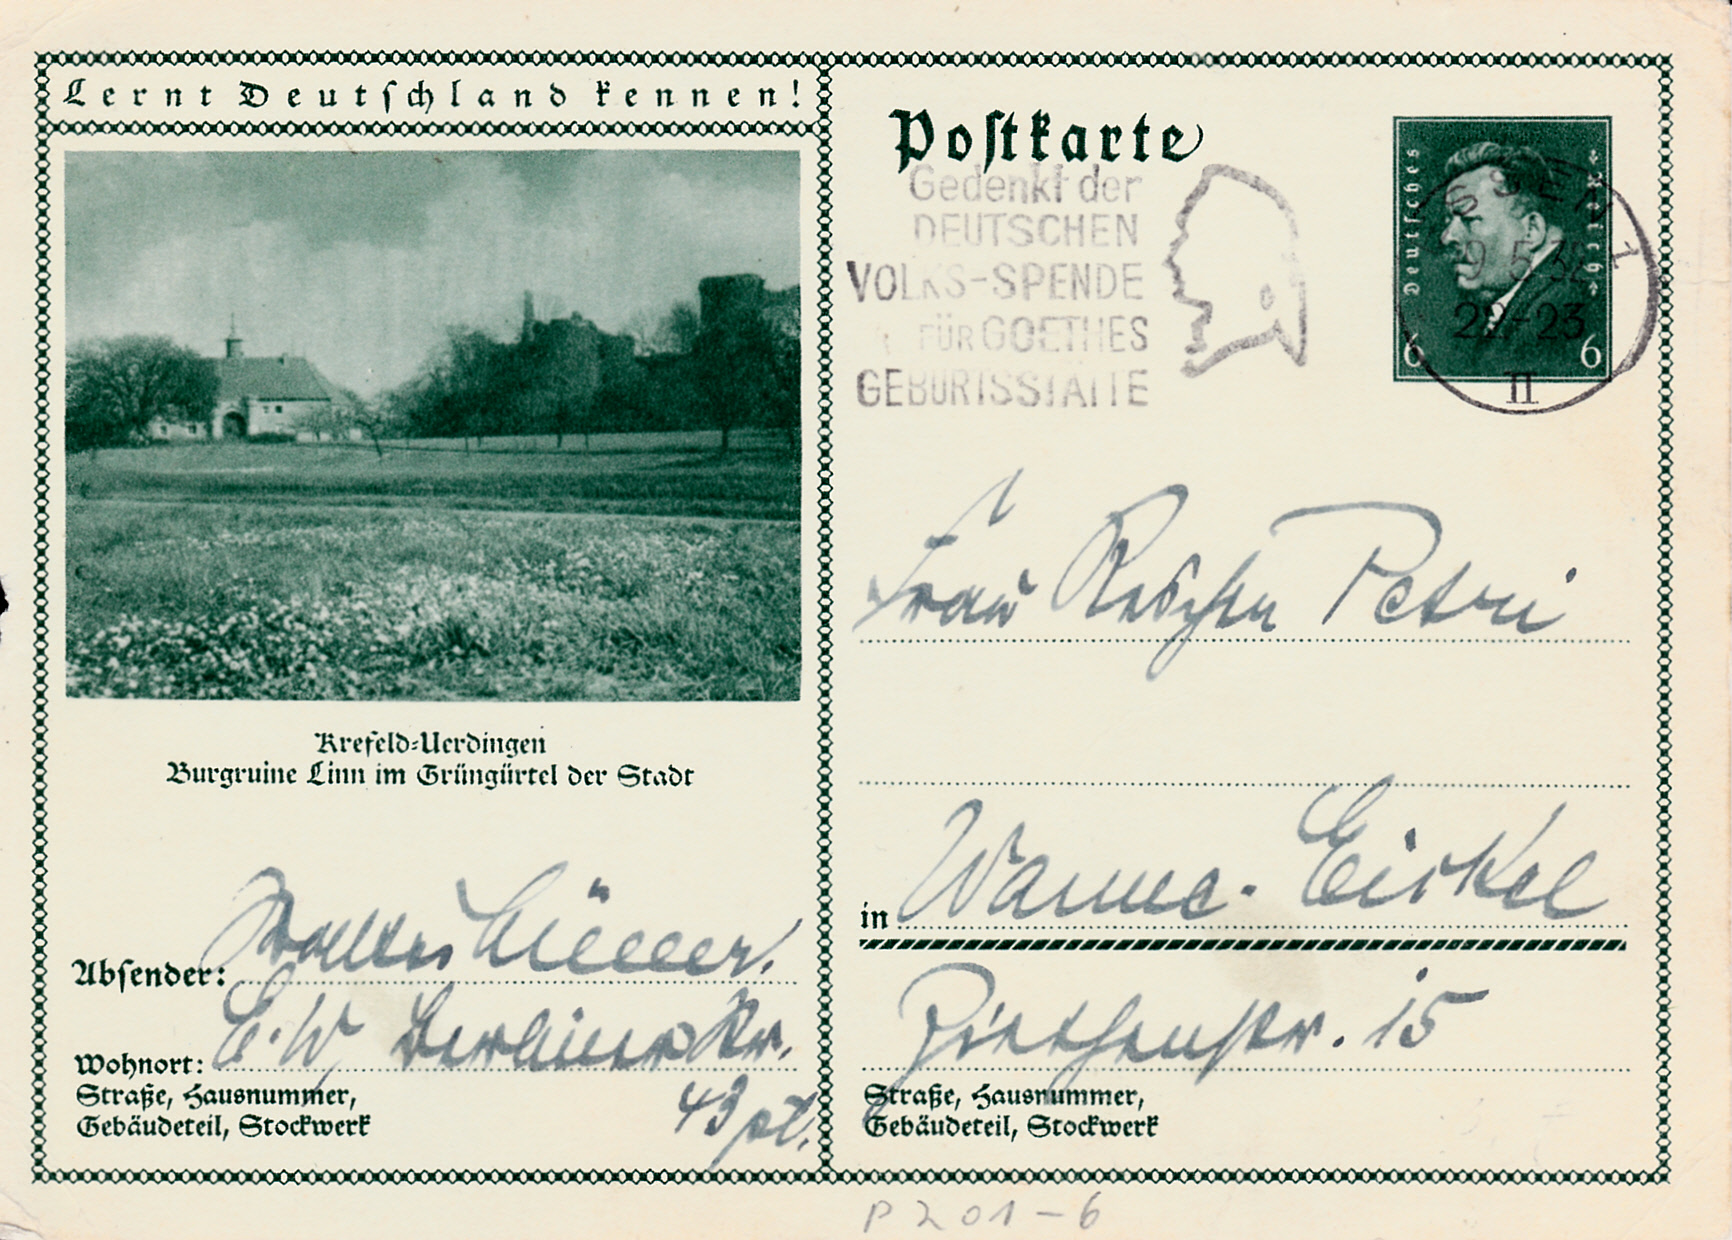 Lernt Deutschland kennen!
Krefeld-Uerdingen
Burgruine Linn im Grüngürtel der Stadt
Absender: Müller.
Wohnort: E.W. Berliner Str.
43 pt.
Straße, Hausnummer,
Gebäudeteil, Stockwerk
Postkarte
Gedenkt der
DEUTSCHEN
VOLKS-SPENDE
FÜR GOETHES
GEBURTSSTÄTTE
Deutsches Reich
6 6
ESSEN 1
9.5.32
22-23
II
Frau Petri
in Wanne-Eickel
Ziethenstr. 15
Straße, Hausnummer,
Gebäudeteil, Stockwerk
P201-6